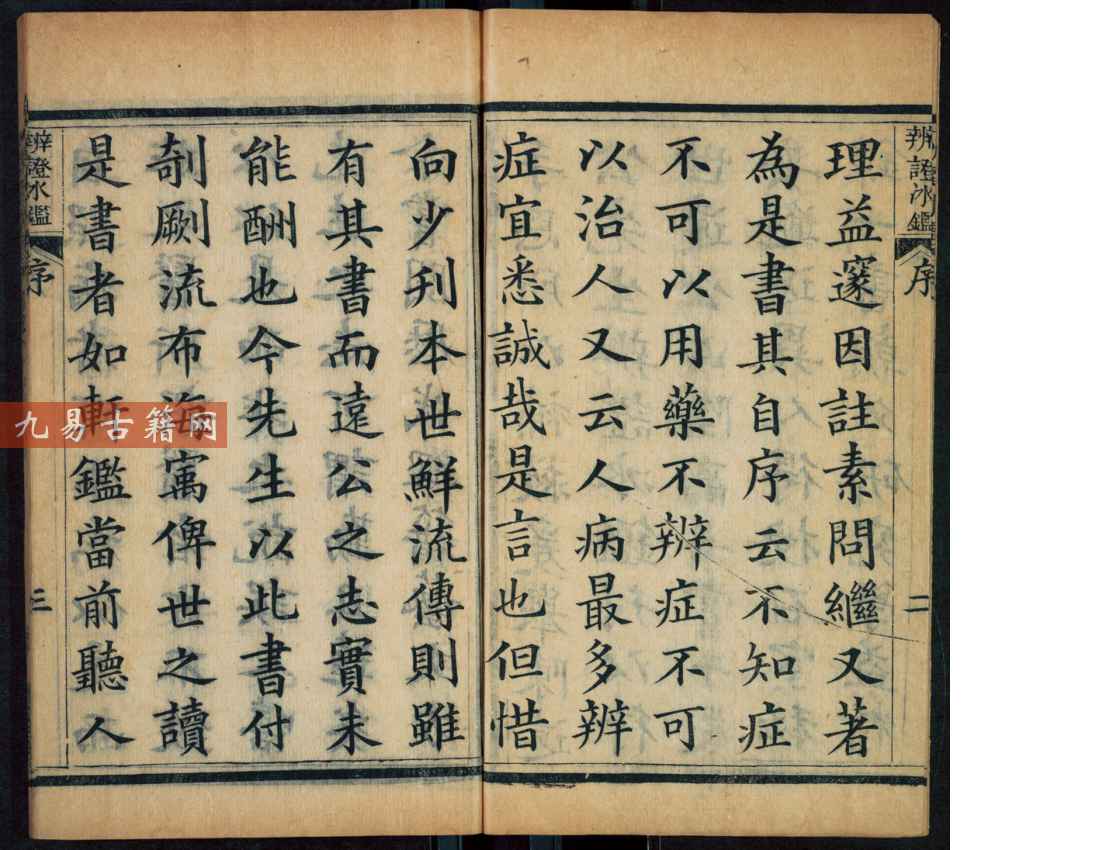 辨證冰鑑
序
二
理益邃因註素問繼又著
為是書其自序云不知症
不可以用藥不辨症不可
以治人又云人病最多辨
症宜悉誠哉是言也但惜
向少刊本世鮮流傳則雖
有其書而遠公之志實未
能酬也今先生以此書付
剞劂流布海寓俾世之讀
是書者如軒鑑當前聽人
辨證冰鑑
序
三
九易古籍网